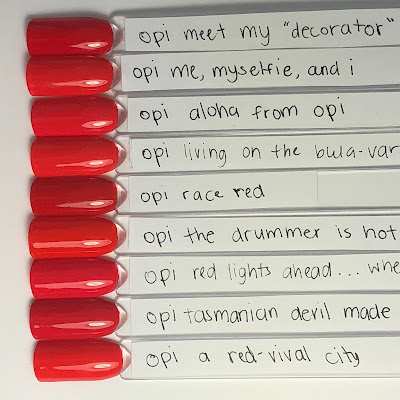 opi meet my "decorator"
opi me, myselfie, and i
opi aloha from opi
opi living on the bula-var
opi race red
opi the drummer is hot
opi red lights ahead... whe
opi tasmanian devil made
opi a red-vival city